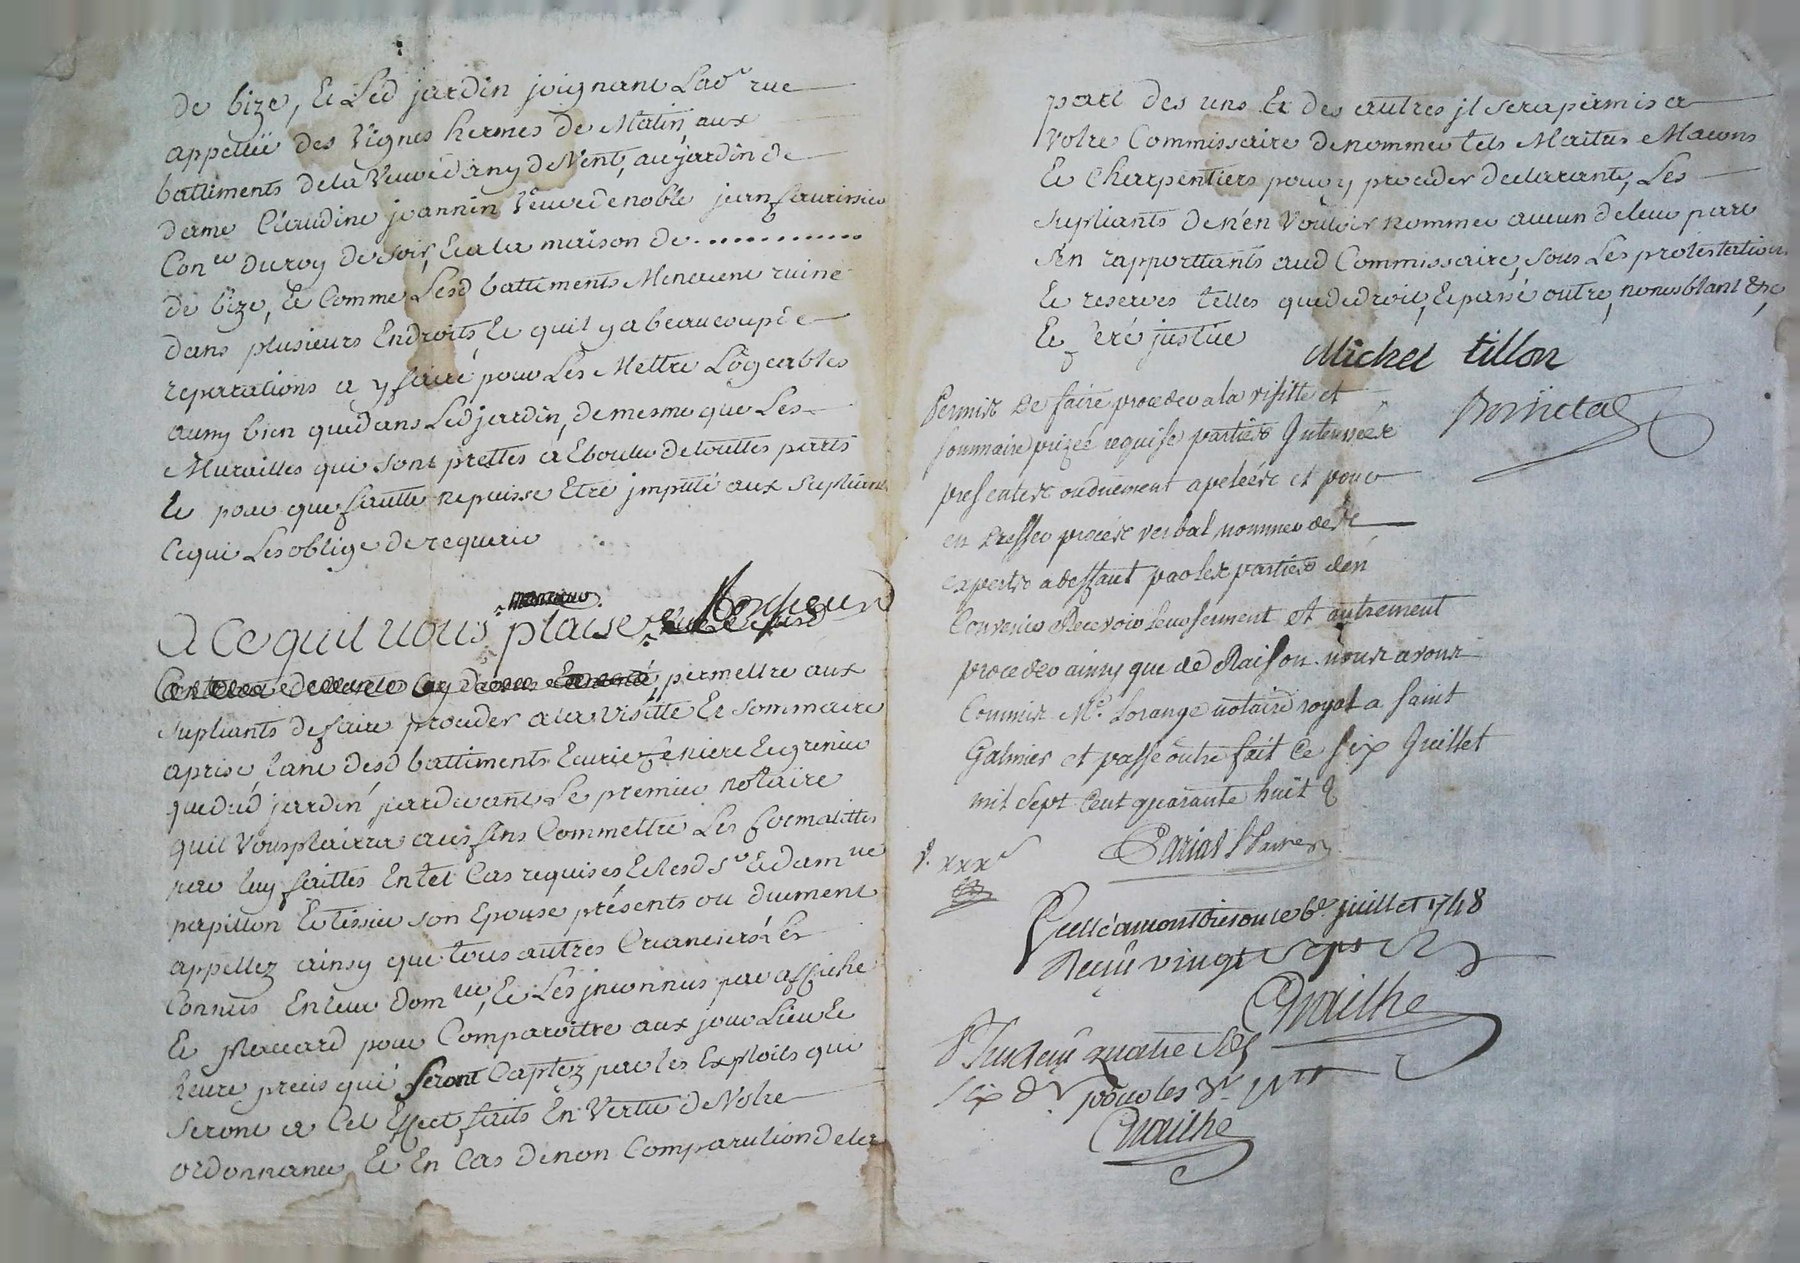 de bize, et Led jardin joignant Lad^e rue
appellée des Vignes hermes de Matin, aux
battiments dela Veuve dany de Vent, au jardin de
dame Claudine jeannin Veuve de noble jean
Con^er du roy de Soir, et a la maison de .............
de bize, et Comme Lesd battiments Menacent ruine
dans plusieurs Endroits, et quil y a beaucoup de
reparations a y faire pour Les Mettre Logeables
aussy bien que dans Led jardin, de mesme que Les
Murailles qui sont prettes a Ebouler de touttes parts
Et pour que fautte ne puisse Etre imputé aux Supliants
Ce qui Les oblige de requerir
A Ce quil vous plaise Monsieur
permettre aux
supliants de faire proceder a la Visitte Et Sommaire
aprise, tant desd battiments Ecurie feniere Et grenier
que dud jardin pardevant Le premier notaire
quil Vous plairra aux fins Commettre Les formalittes
par luy faittes En tel Cas requises Et Lesd S^r Et dam^lle
papillon Et tissier son Epouse présents ou duement
appellez ainsy que tous autres Creanciers Les
Connus En leur dom^lle, Et Les jnconnus par affiche
Et placard pour Comparoitre aux jour Lieu Et
heure precis qui seront Captez par les Exploits qui
Seront a Cet Effect faits En Vertu de Votre
ordonnance, Et En Cas de non Comparution de la
part des uns Et des autres jl sera permis a
Votre Commissaire de nommer tels Maitres Macons
Et Charpentiers pour y proceder declarants, Les
Supliants de n'en Vouloir nommer aucun de leur part
S'en rapporttants aud Commissaire, sous Les protestations
Et reserves telles que de droit, Et passé outre, nonobstant &c,
Et feré justice
Michel tillon
Permis de faire proceder a la visitte et
sommaire prizée requise parties Interessées
presentes ou duement apelées et pour
en dresser procès verbal nommer des
experts a deffaut par les parties d'en
Convenir Recevoir leur serment et autrement
proceder ainsy que de Raison nous avons
Commis M^e. Lorange notaire royal a saint
Galmier et passé outre fait Ce six Juillet
mil sept Cent quarante huit
Scellé a montbrison le 6^e juillet 1748
Reçu vingt sept s
Chailhe
quatre sols
six d pour les 3
Chailhe